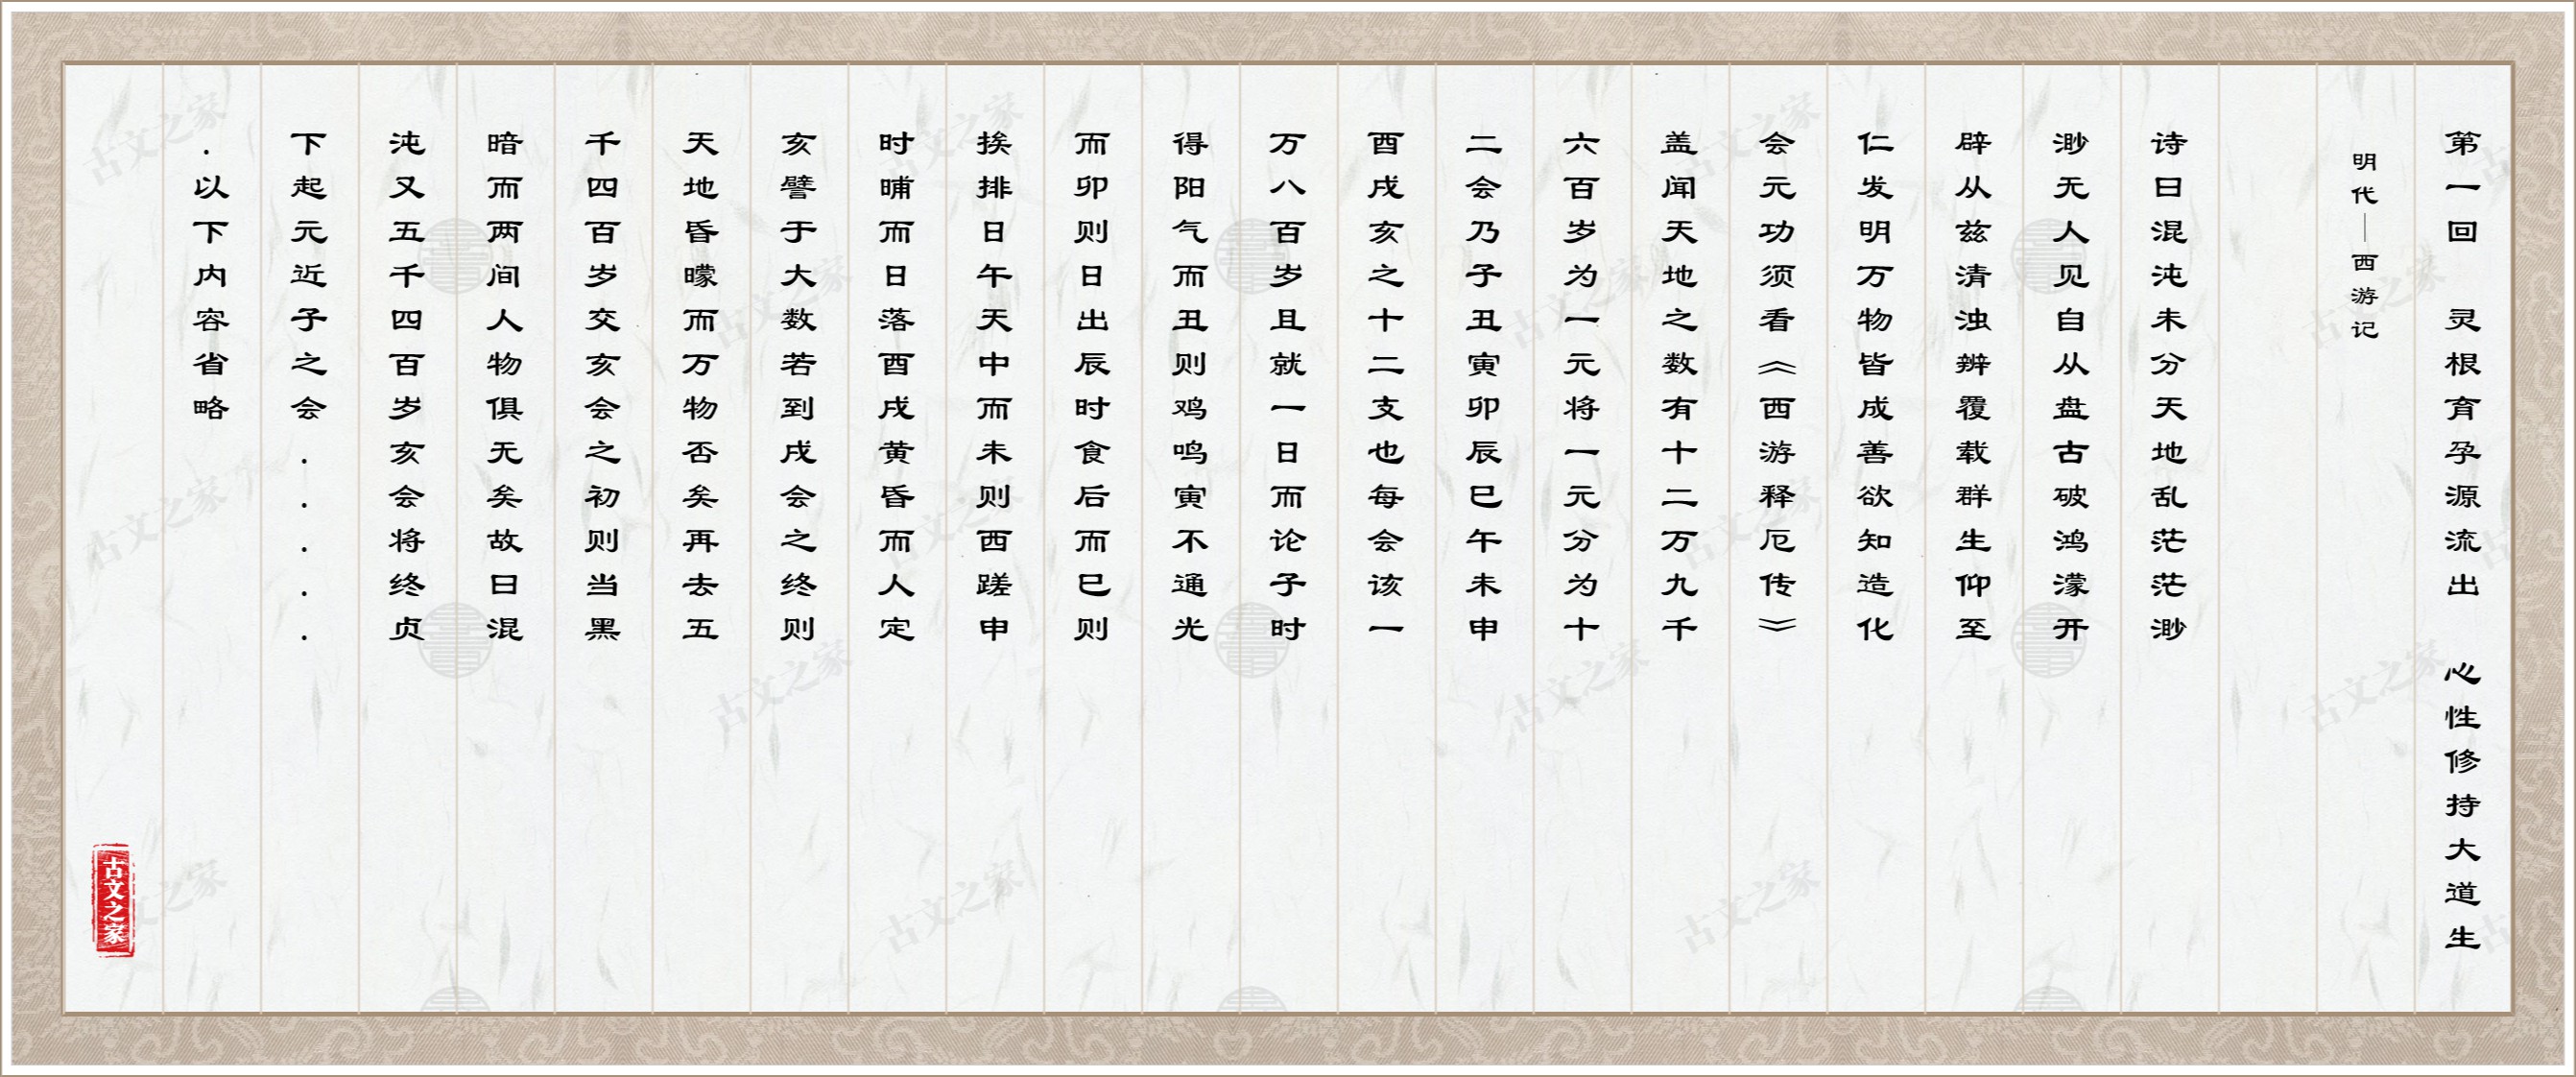 第一回 灵根育孕源流出 心性修持大道生
明代—西游记
诗曰混沌未分天地乱茫茫渺
渺无人见自从盘古破鸿濛开
辟从兹清浊辨覆载群生仰至
仁发明万物皆成善欲知造化
会元功须看《西游释厄传》
盖闻天地之数有十二万九千
六百岁为一元将一元分为十
二会乃子丑寅卯辰巳午未申
酉戌亥之十二支也每会该一
万八百岁且就一日而论子时
得阳气而丑则鸡鸣寅不通光
而卯则日出辰时食后而巳则
挨排日午天中而未则西蹉申
时晡而日落酉戌黄昏而人定
亥譬于大数若到戌会之终则
天地昏曚而万物否矣再去五
千四百岁交亥会之初则当黑
暗而两间人物俱无矣故曰混
沌又五千四百岁亥会将终贞
下起元近子之会.....
.以下内容省略
古文之家